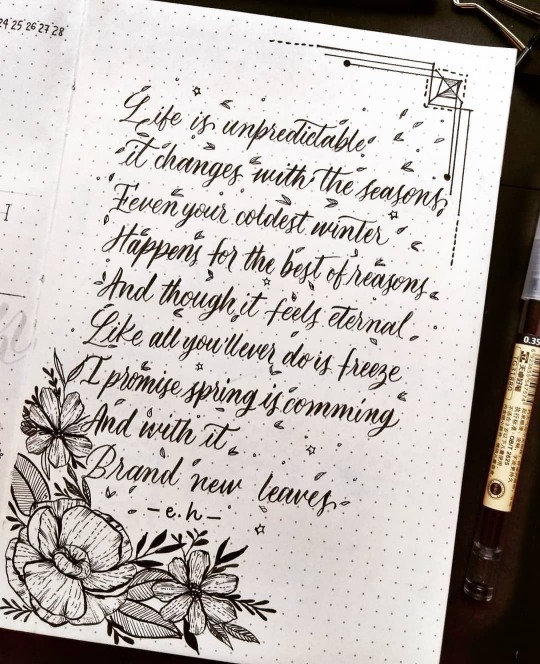 24 25 26 27 28
Life is unpredictable
it changes with the seasons
Eeven your coldest winter
Happens for the best of reasons
And though it feels eternal
Like all you'llever do is freeze
I promise spring is comming
And with it
Brand new leaves
-e.h-
I
0.35